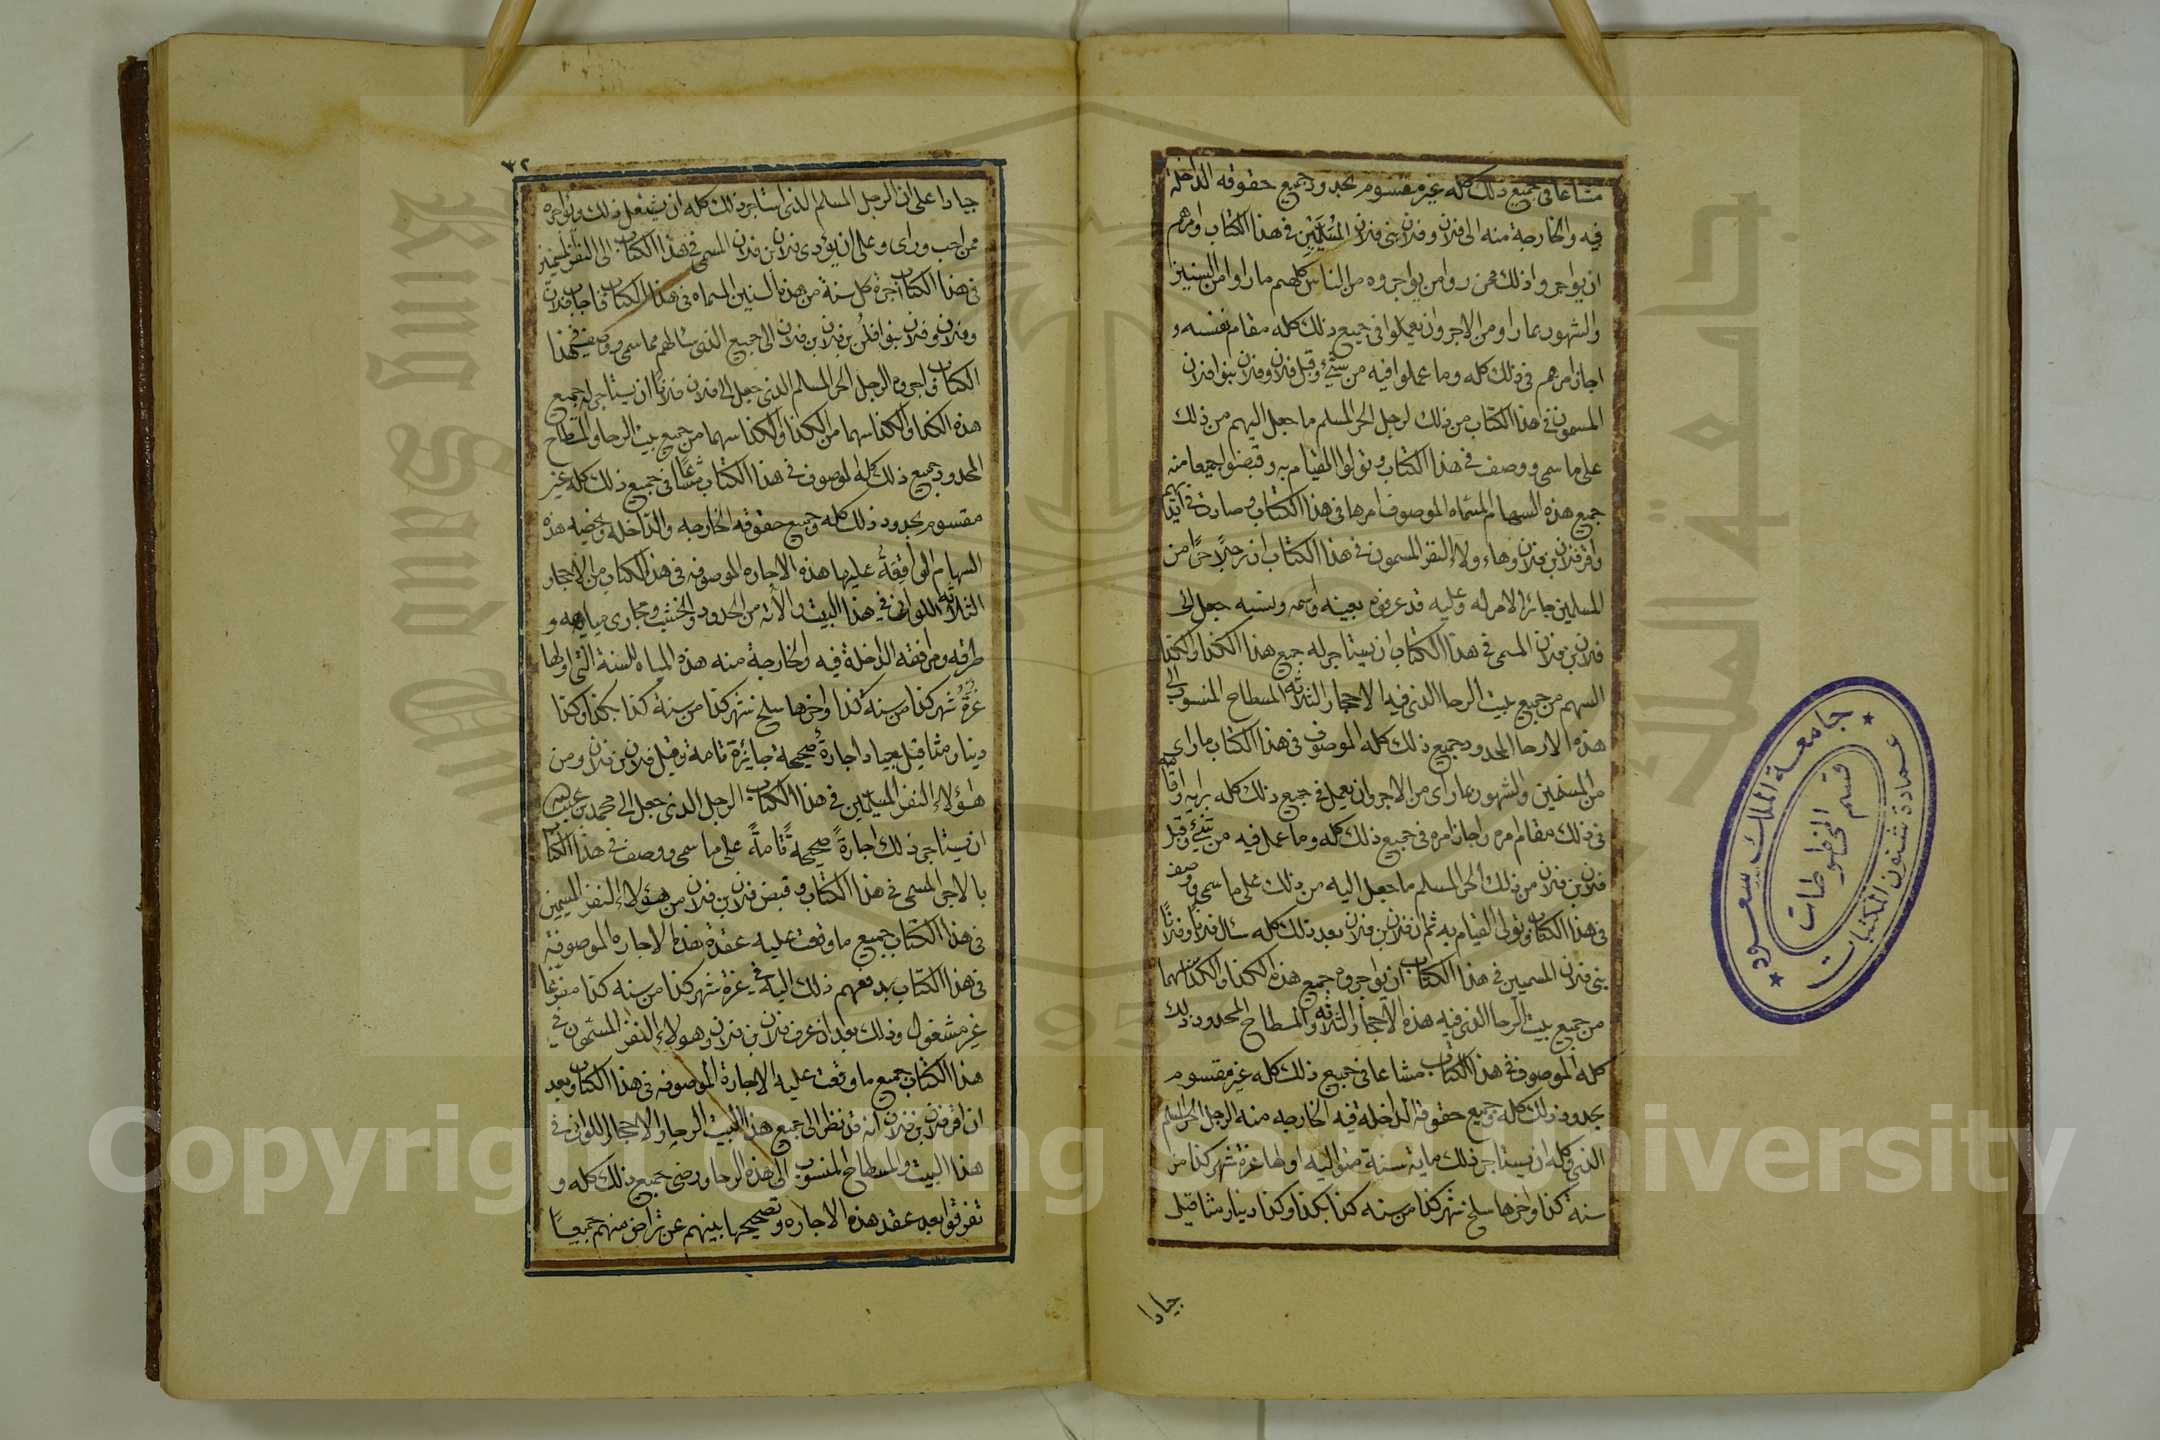 مشاعا في جميع ذلك كله غير مقسوم بحدود جميع حقوقه الداخلة
فيه والخارجة منه الى فلان وفلان بنى فلان المسمين في هذا الكتاب وامرهم
ان يواجروا ذلك ممن روا من يواجروه من الناس كلهم ما راوا من السنين
والشهور بما راو من الاجر وان يعملوا في جميع ذلك كله مقام نفسه و
اجاز امرهم في ذلك كله وما عملوا فيه من شيء وقبل فلان وفلان بنوا فلان
المسمون في هذا الكتاب من ذلك لرجل الحر المسلم ما جعل اليهم من ذلك
على ما سمى ووصف في هذا الكتاب وتولوا القيام به وقبضوا جميعا منه
جميع هذه السهام المسماه الموصوف امرها في هذا الكتاب وصارت في ايديهم
واقر فلان بن فلان وهاءولاء النفر المسمون في هذا الكتاب ان رجلا حرا من
المسلمين جائز الامر له وعليه قد عرفوه بعينه واسمه ونسبه جعل الى
فلان بن فلان المسمى في هذا الكتاب ان يستاجر له جمع هذا الكذا والكذا
السهم من جميع بيت الرحا الذى فيه الاحجار الثلاثة المسطاح المنسوب الى
هذه الارحا المحدود جميع ذلك كله الموصوف في هذا الكتاب ما راى
من السنين والشهور بما راى من الاجر وان يعمل في جميع ذلك كله برايه واقامه
في ذلك مقام امره واجاز امره في جميع ذلك كله وما عمل فيه من شيء وقبل
فلان بن فلان من ذلك الحر المسلم ما جعل اليه من ذلك على ما سمى ووصف
في هذا الكتاب وتولى القيام به ثم ان فلان بن فلان بعد ذلك كله سال فلانا وفلانا
بنى فلان المسمين في هذا الكتاب ان يواجروه جميع هذه الكذا والكذا سهما
من جميع بيت الرحا الذى فيه هذه الاحجار الثلاثة والمسطاح المحدود ذلك
كله الموصوف في هذا الكتاب مشاعا في جميع ذلك كله غير مقسوم
بحدود ذلك كله وجميع حقوقه الداخلة فيه الخارجه منه الرجل الحر المسلم
الذى وكله ان يستاجر ذلك مايه سنة متواليه اولها غرة شهر كذا من
سنة كذا واخرها سلخ شهر كذا من سنه كذا بكذا وكذا دينار مثاقيل
جيادا
٣٢
جيادا على ان الرجل المسلم الذى استاجر ذلك كله ان يشغل ذلك ويواجره
ممن احب وراى وعلى ان يؤدى فلان بن فلان المسمى في هذا الكتاب الى النفر المسمين
في هذا الكتاب اجرة كل سنة من هذه السنين المسماه في هذا الكتاب فاجاب فلان
وفلان وفلان بنوا فلان بن فلان بن فلان الى جميع الذى سالهم مما سمى ووصف في هذا
الكتاب واجروه الرجل الحر المسلم الذى جعل الى فلان فلانا ان يستاجر له جميع
هذه الكذا والكذا سهما من الكذا والكذا سهما من جميع بيت الرحا والمسطاح
المحدود جميع ذلك كله لموصوف في هذا الكتاب مشاعا في جميع ذلك كله غير
مقسوم بحدود ذلك كله وجميع حقوقه الخارجه والداخله وبخصه هذه
السهام الواقعة عليها هذه الاجاره الموصوفه في هذا الكتاب من الاحجار
الثلاثة اللواتى في هذا البيت والآته من الحدود والخشب ومجارى مياهه و
طرقه ومرافقه الداخلة فيه والخارجة منه هذه المياه للسنة التى اولها
غرة شهر كذا من سنه كذا واخرها سلخ شهر كذا من سنة كذا بكذا وكذا
دينار مثاقيل جياد اجارة صحيحة جايزة تامة وقبل فلان بن فلان ومن
هؤلاء النفر المسلمين في هذا الكتاب الرجل الذى جعل الى محمد بن عبد الله
ان يستاجر ذلك اجارة صحيحة تامة على ما سمى ووصف في هذا الكتاب
بالاجر المسمى في هذا الكتاب وقبض فلان بن فلان من هؤلاء النفر المسمين
في هذا الكتاب جميع ما وقعت عليه عقدة هذه الاجاره الموصوفة
في هذا الكتاب بدفعهم ذلك اليه في غرة شهر كذا من سنه كذا مفرغا
غير مشغول وذلك بعد ان عرف فلان بن فلان وهولاء النفر المسمون في
هذا الكتاب جميع ما وقعت عليه الاجارة الموصوفه في هذا الكتاب وبعد
ان اقر فلان بن فلان انه قد نظر الى جميع هذا البيت الرحا والاحجار اللواتى في
هذا البيت والمسطاح المنسوب الى هذه الرحا ورضى جميع ذلك كله و
تفرقوا بعد عقد هذه الاجاره وتصحيحها بينهم عن تراض منهم جميعا
جامعة الملك سعود
عمادة شئون المكتبات
قسم المخطوطات
King Saud University
جامعة الملك سعود
1957
Copyright © King Saud University